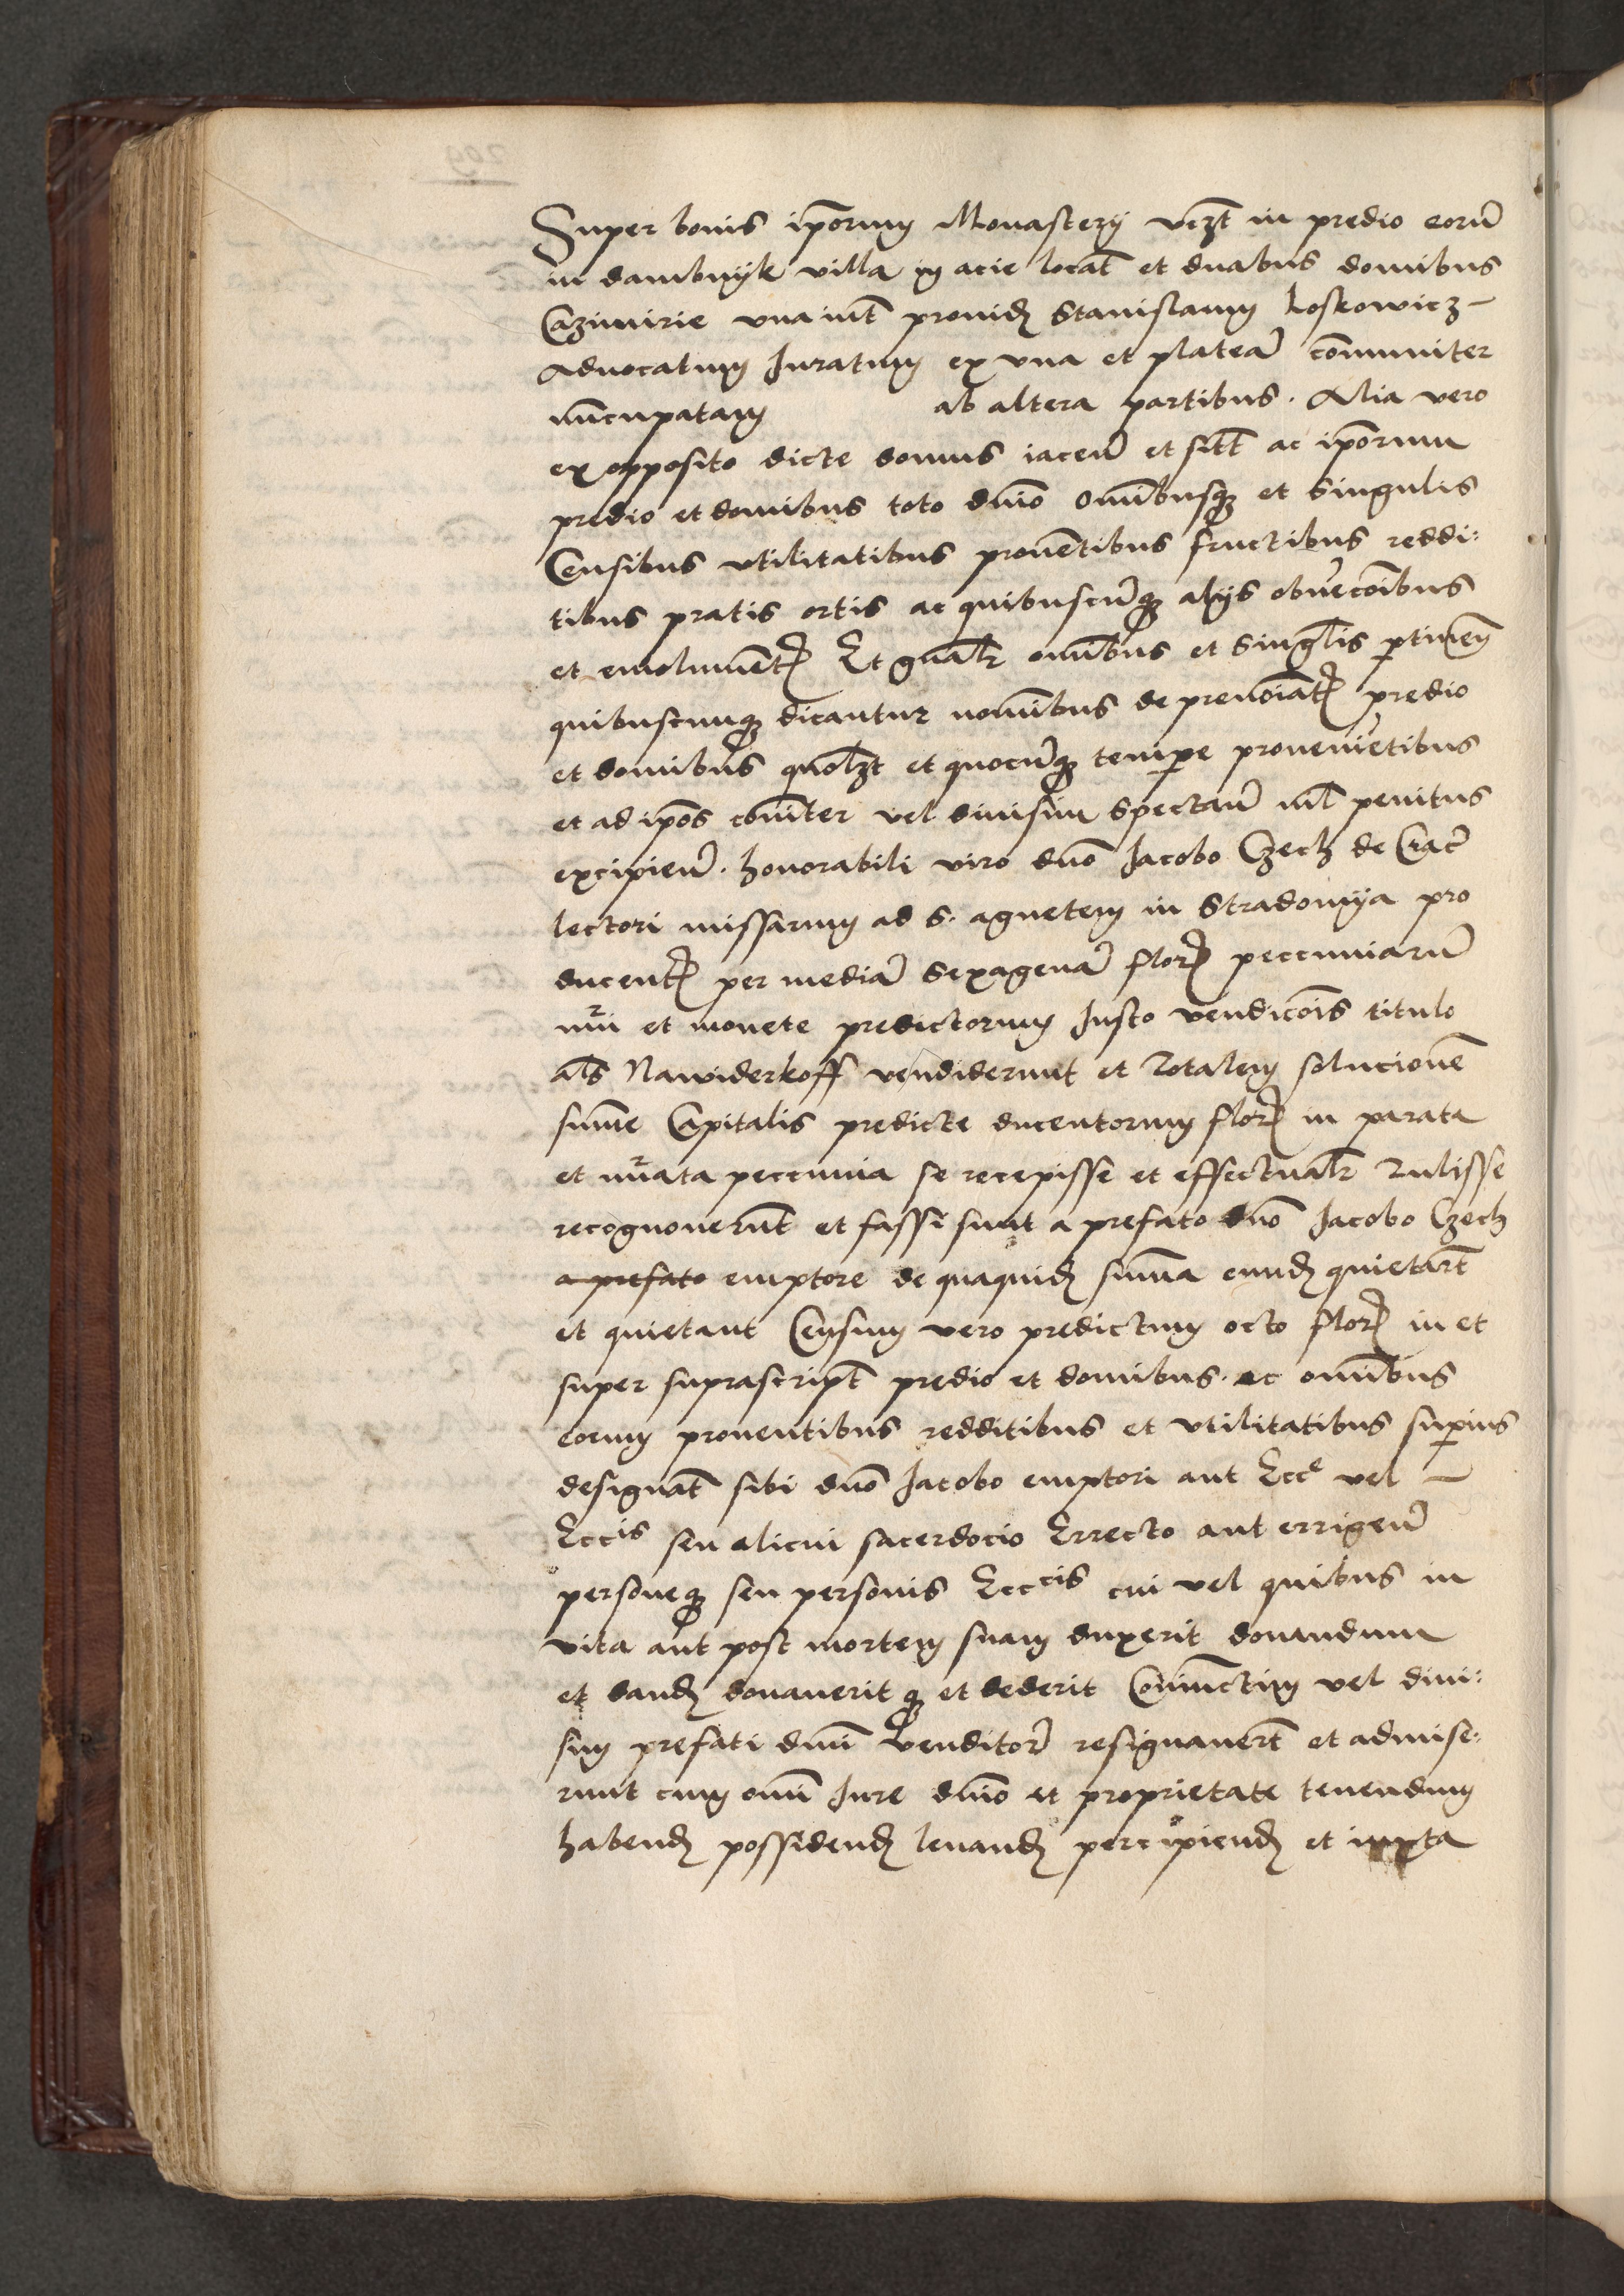 Super bonis ip̄orum Monasterij vcȝt in predio eorū
in dambnijk villa in acie locat̄ et duabus domibus
Cazimirie vna iuxt̄ prouid̄ Stanislaum Loskowicz
Aduocatum Juratum ex vna et plateā com̄uniter
nūncupatam ab altera partibus. Alia vero
ex opposito dicte domus iacen̄ et sitt̄ ac ip̄orum
predio et domibus toto dn̄io om̄ibusqȝ et singulis
Censibus vtilitatibus prouētibus fructibus reddi:
tibus pratis ortis ac quibuscūqȝ alijs obuēcōibus
et emolumēt̄ Et gn̄alr̄ om̄ibus et singl̄is ptineñ
quibuscumqȝ dicantur nomībus de prenōīat̄ predio
et domibus quolȝt et quocūqȝ tempe prouenīetibus
et ad ip̄os com̄iter vel diuisim spectan̄ nil̄ penitus
excipien̄. honorabili viro dn̄o Jacobo Czech de Crac̄
lectori missarum ad S. agnetem in Stradomya pro
ducent̄ per mediā sexagenā flor̄ peccuniarū
nūri et monete predictorum Justo vendicōis titulo
al̄s Nawiderkoff vendiderunt et Totalem solucionē
sum̄e Capitalis predicte ducentorum flor̄ in parata
et nūata peccunia se recepisse et effectualr̄ Tulisse
recognouerūt et fassi sunt a prefato dn̄o Jacobo Czech
a prefato emptore de quaquid̄ sum̄a eund̄ quietar̄t
et quietant Censum vero predictum octo flor̄ in et
super suprascript̄ predio et domibus. ac om̄ibus
eorum prouentibus redditibus et vtilitatibus supius
designat̄ sibi dn̄o Jacobo emptori aut Ecce vel
Eccis seu alicui sacerdocio Errecto aut errigen̄
personeqȝ seu personis Ecccis cui vel quibus in
vita aut post mortem suam duxerit donandum
et dand̄ donauerit qȝ et dederit Coniūctim vel diui:
sim prefati dn̄i venditor̄ resignauer̄t et admise:
runt cum om̄i Jure dn̄io et proprietate tenendum
habend̄ possidend̄ leuand̄ percipiend̄ et iuxta